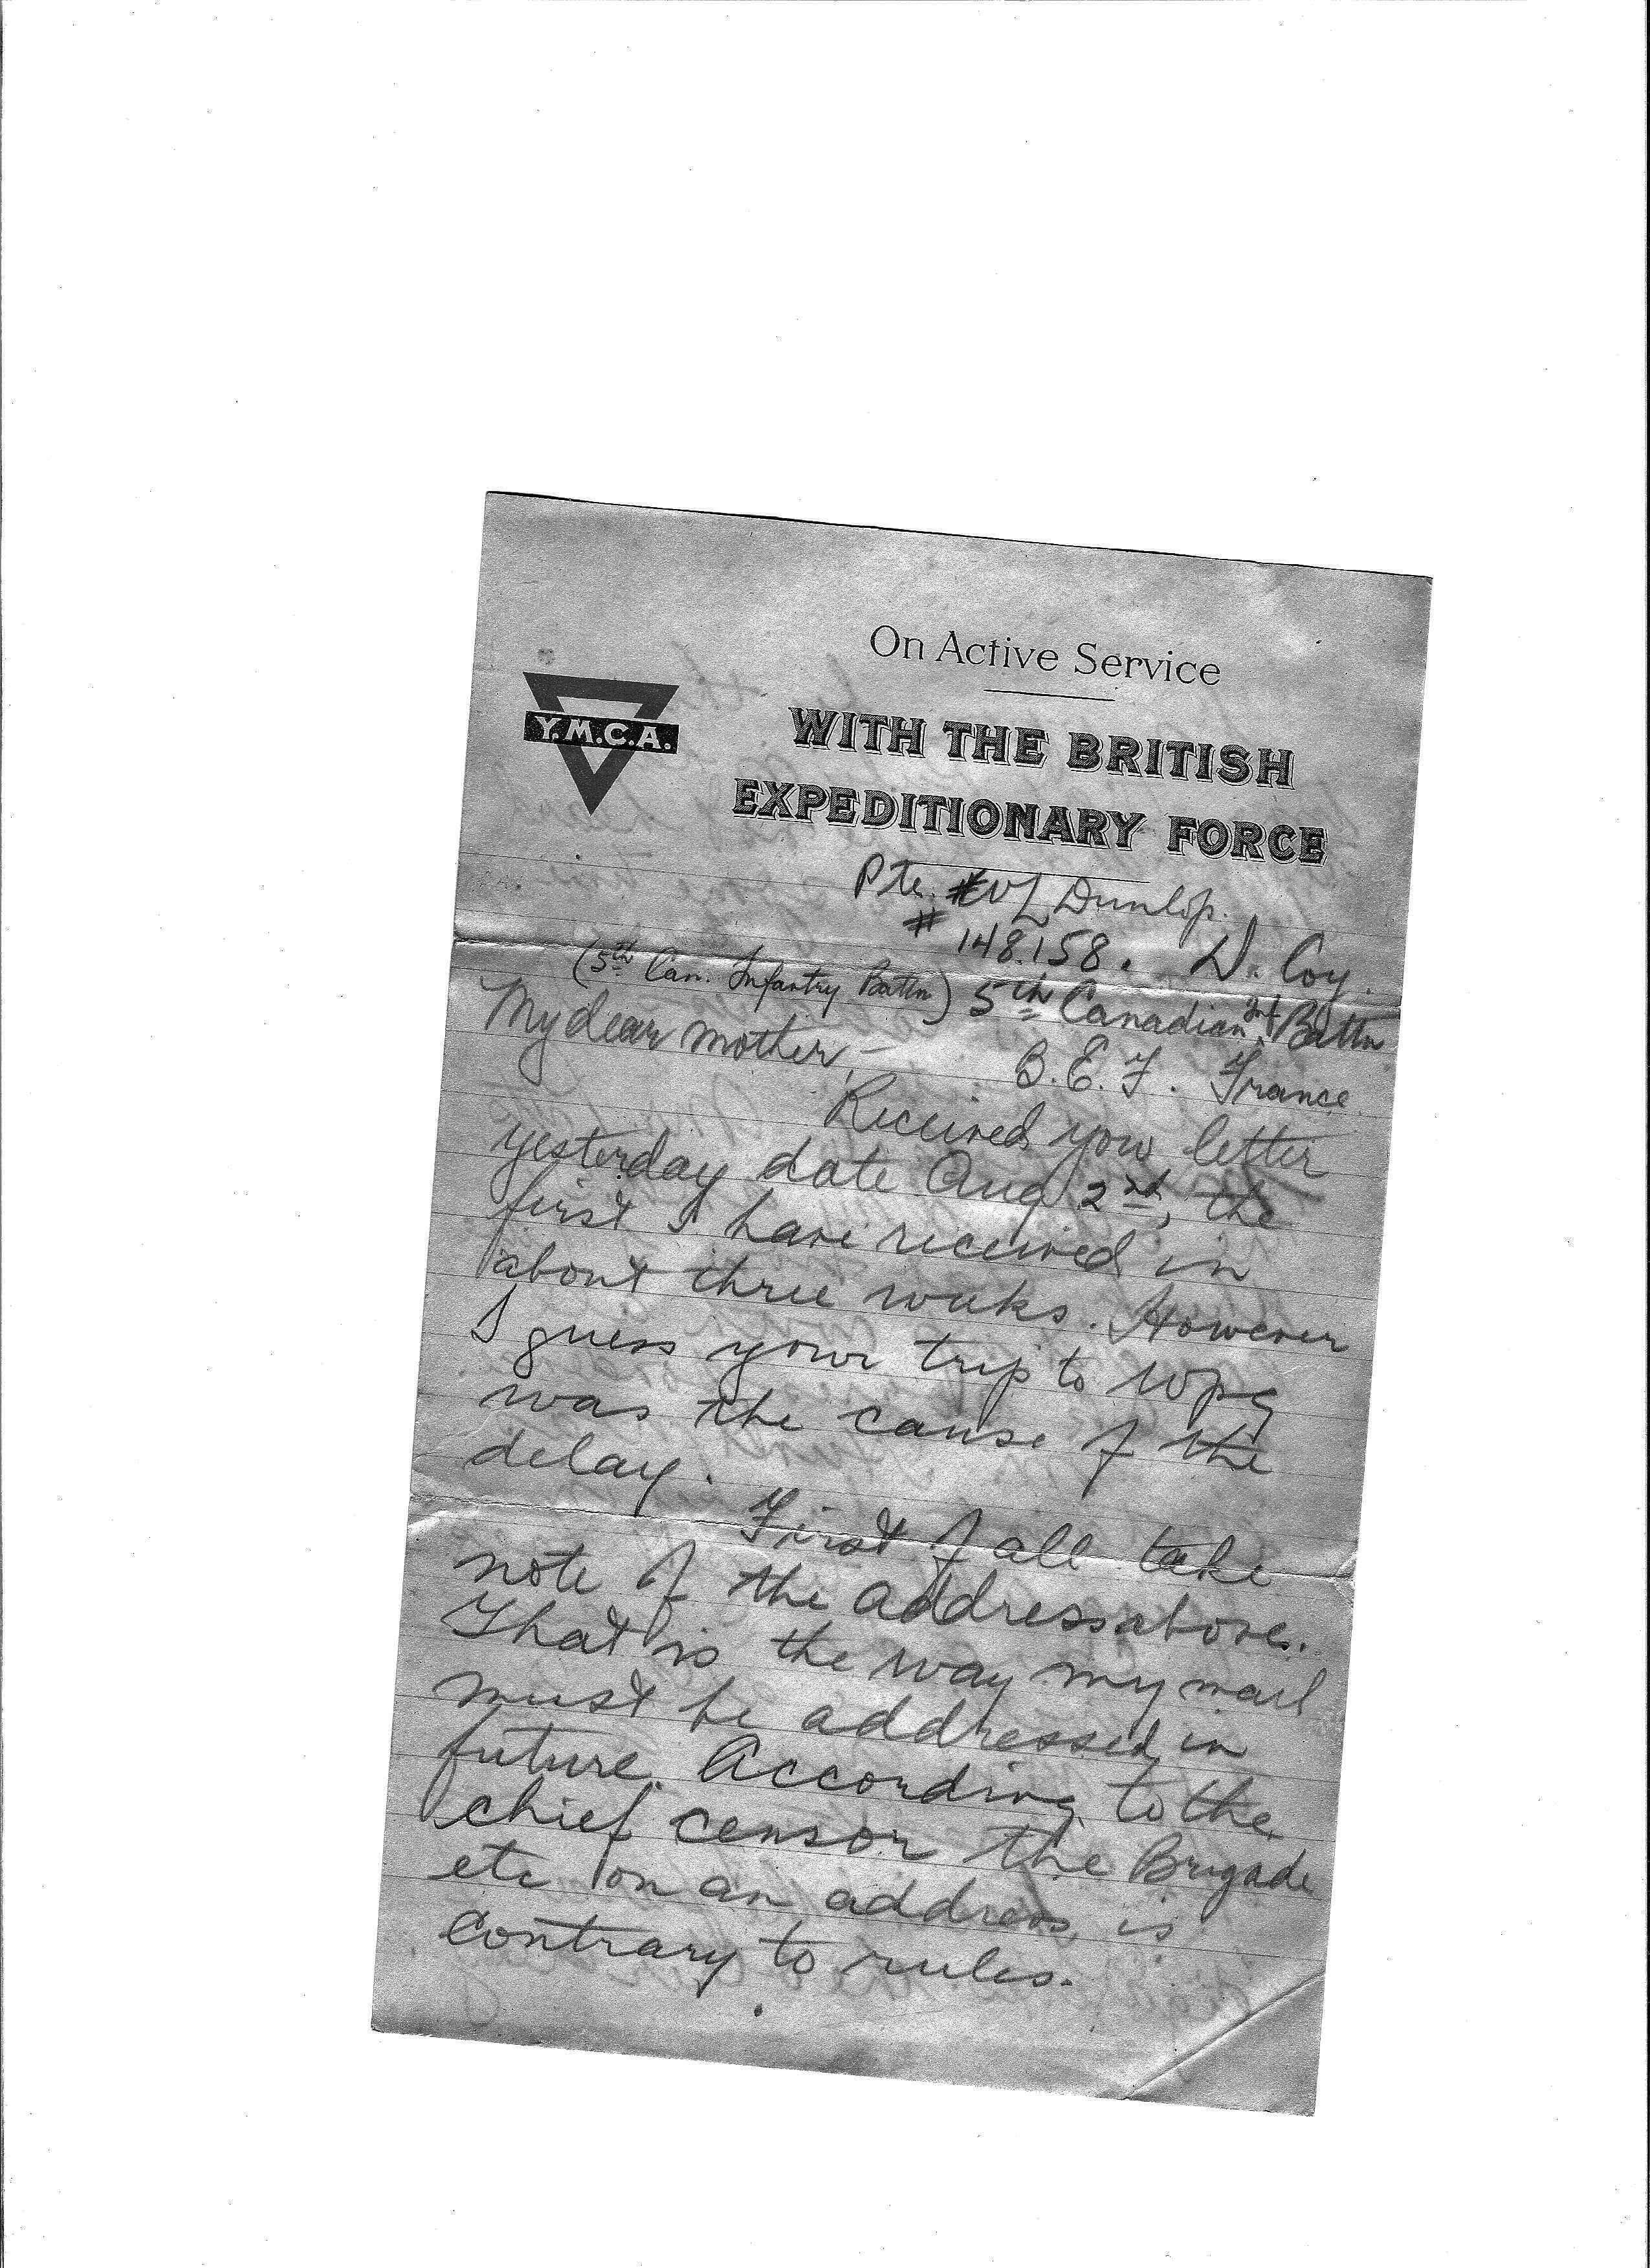 On Active Service
Y.M.C.A.
WITH THE BRITISH
EXPEDITIONARY FORCE
Pte. # Dunlop.
# 148.158. D. Coy.
(5th Can. Infantry Battn) 5th Canadian Inf. Battn
My dear mother,— B.E.F. France
Received your letter
yesterday date Aug 2nd, the
first I have received in
about three weeks. However
I guess your trip to Wpg
was the cause of the
delay.
First of all take
note of the address above.
That is the way my mail
must be addressed in
future. According to the
chief censor the Brigade
etc on an address is
contrary to rules.